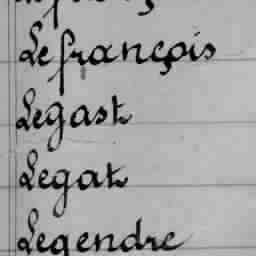 Lefrançois
Legast
Legat
Legendre